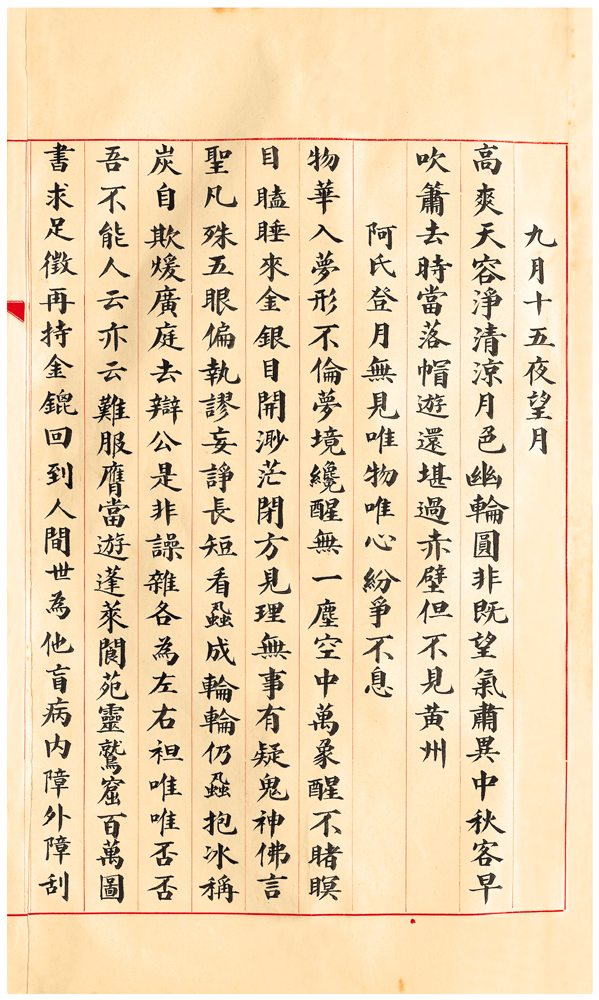 九月十五夜望月
高爽天容淨清涼月色幽輪圓非既望氣肅異中秋客早
吹簫去時當落帽遊還堪過赤壁但不見黃州
阿氏登月無見唯物唯心紛爭不息
物華入夢形不倫夢境纔醒無一塵空中萬象醒不睹瞑
目瞌睡來金銀目開渺茫閉方見理無事有疑鬼神佛言
聖凡殊五眼偏執謬妄諍長短看蝨成輪輪仍蝨抱冰稱
炭自欺煖廣庭去辯公是非譟雜各為左右袒唯唯否否
吾不能人云亦云難服膺當遊蓬萊閬苑靈鷲窟百萬圖
書求足徵再持金鎞回到人間世為他盲病內障外障刮